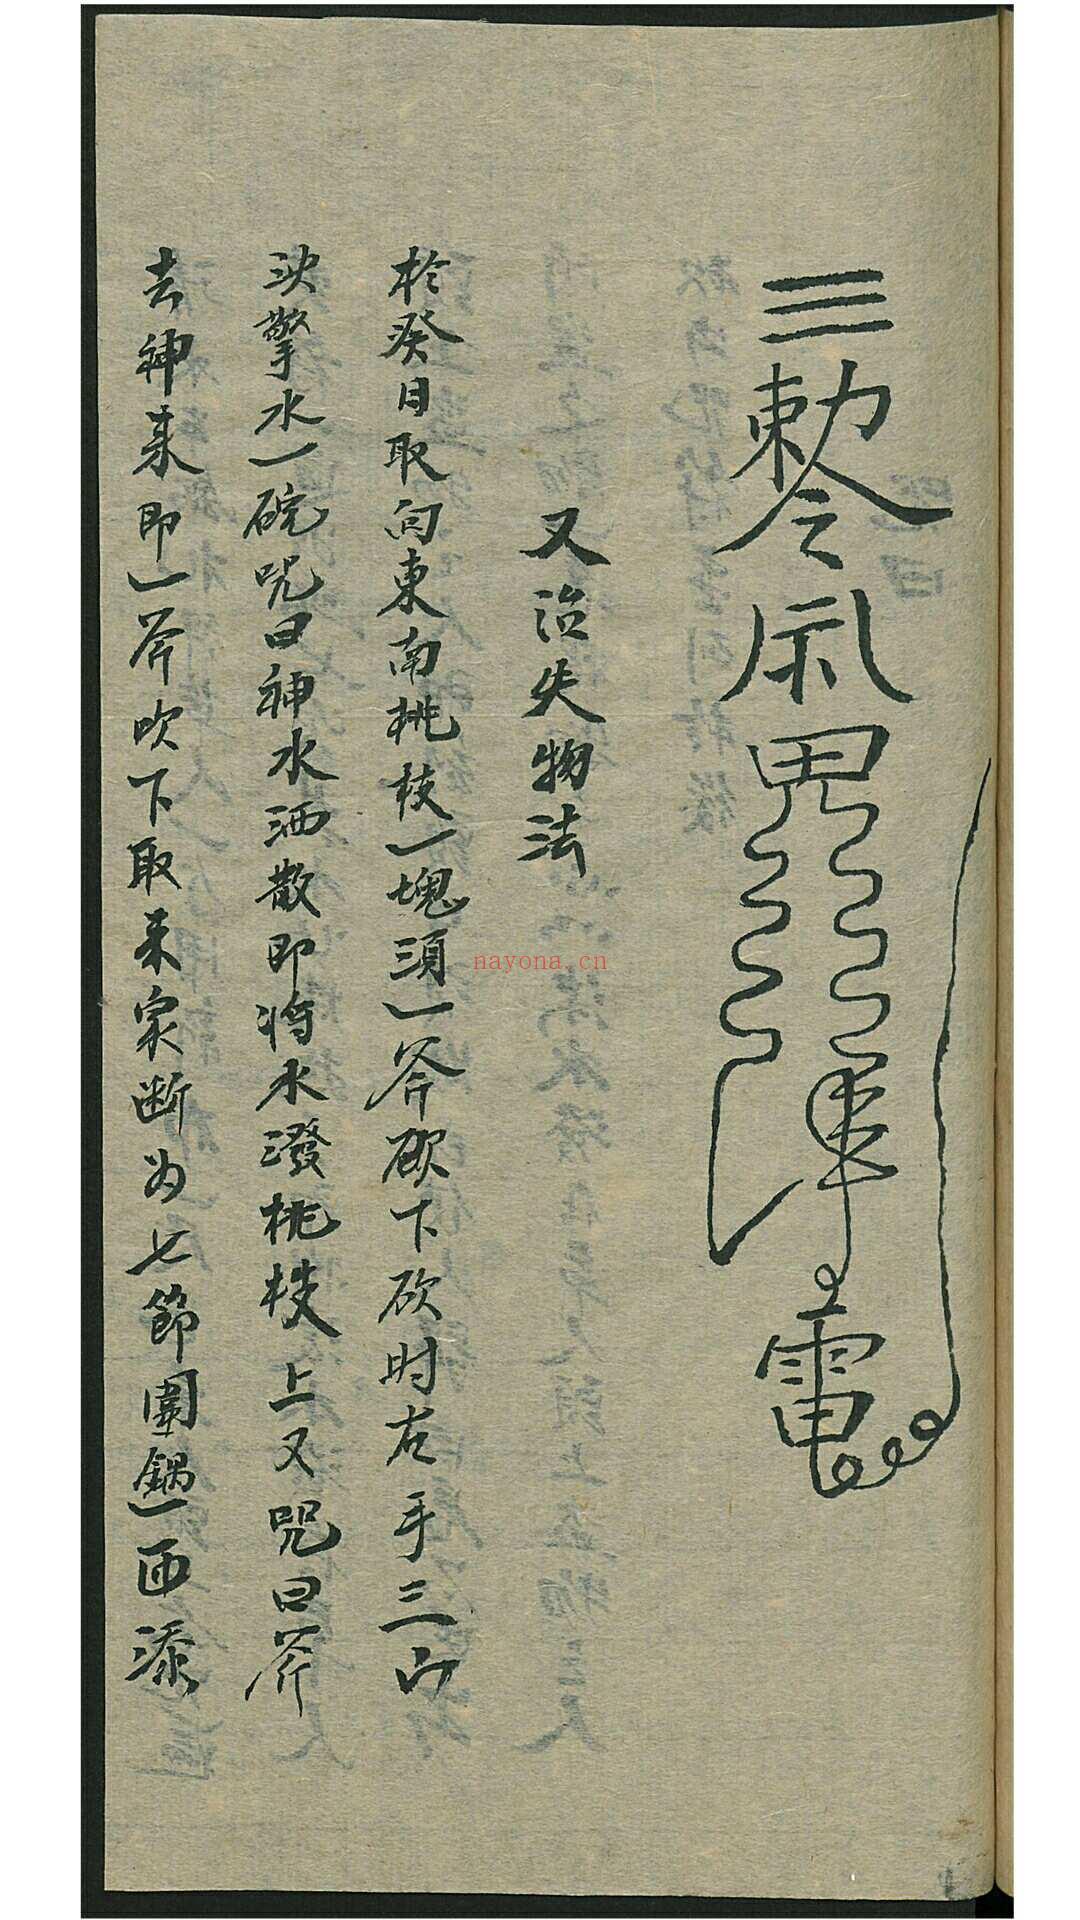 三敕令
電
又治失物法
於癸日取向東南桃枝一塊須一斧砍下砍时左手三山
决擎水一碗咒曰神水洒散即将水潑桃枝上又咒曰斧
去神来即一斧吹下取来家断为七節圍鍋一匝添
nayona.cn